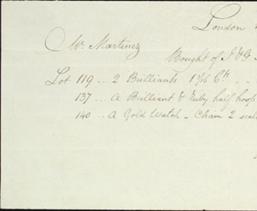 London
Mr Martinez
Bought of J & G
Lot 119 .. 2 Brilliants
137 .. A Brilliant & Ruby half hoop
140 .. A Gold Watch - Chain 2 seals